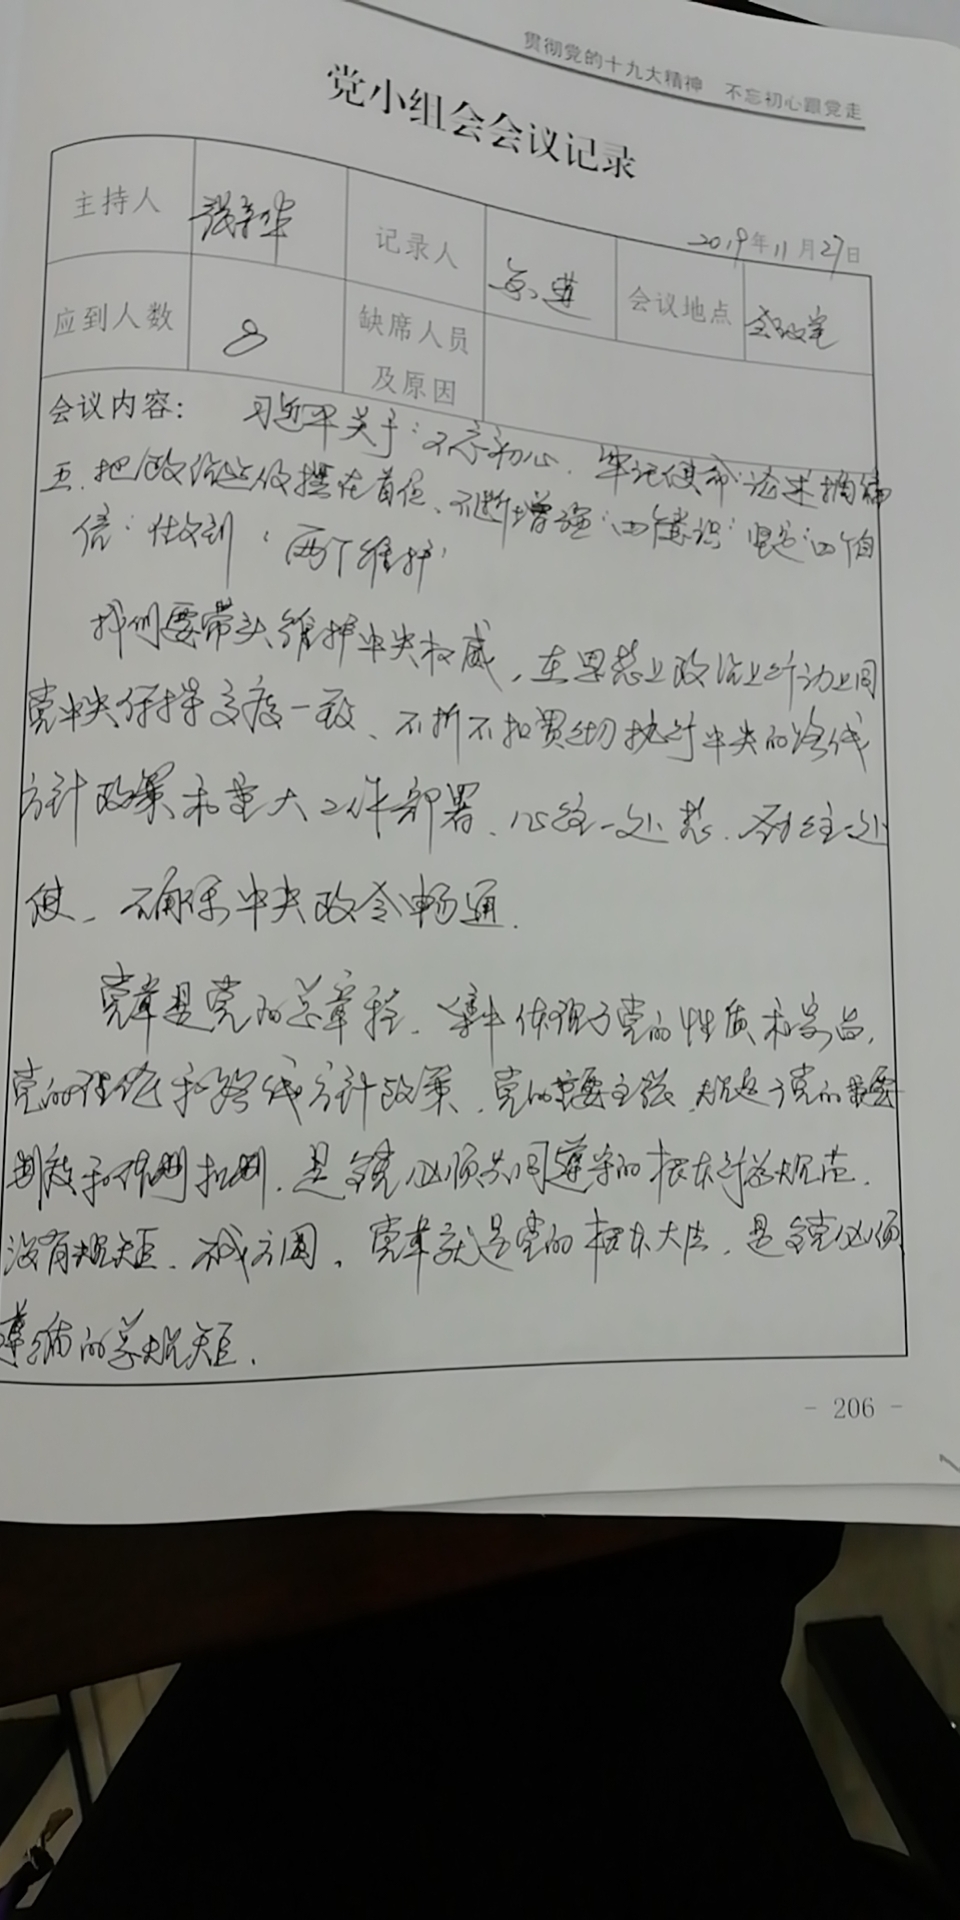 贯彻党的十九大精神 不忘初心跟党走
党小组会会议记录
2019年11月27日
主持人 记录人 会议地点 会议室
应到人数 8 缺席人员及原因
会议内容: 习近平关于“不忘初心、牢记使命”论述摘编
五、把政治建设摆在首位、不断增强“四个意识”坚定“四个自
信”做到“两个维护”
我们要带头维护中央权威,在思想上政治上行动上同
党中央保持高度一致、不折不扣贯彻执行中央的路线
方针政策和重大工作部署、心往一处想、劲往一处
使、确保中央政令畅通.
党章是党的总章程、集中体现了党的性质和宗旨,
党的理论和路线方针政策、党的重要主张、规定了党的重要
制度和体制机制、是全党必须共同遵守的根本行为规范.
没有规矩、不成方圆。党章就是党的根本大法、是全党必须
遵循的总规矩.
- 206 -